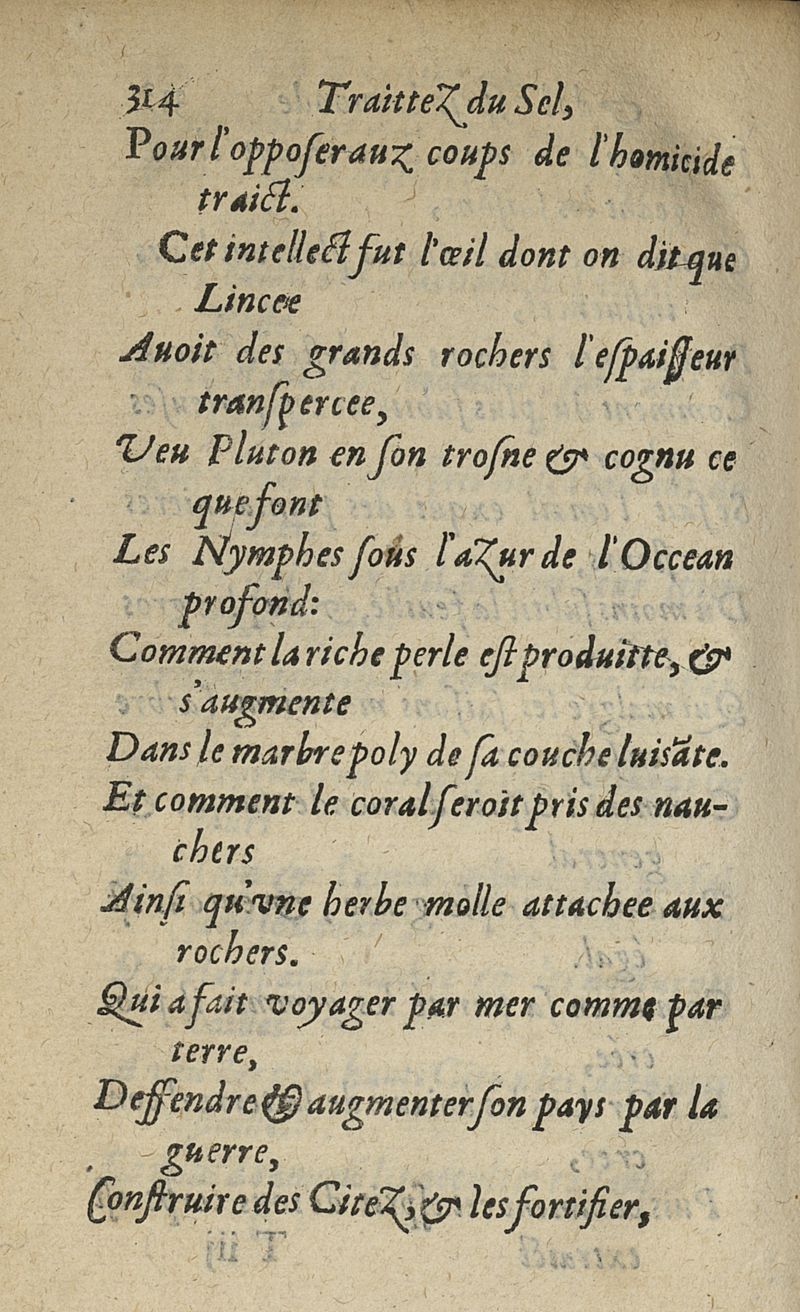 314 Traittez du Sel,
Pour l'opposer auz coups de l'homicide
traict.
Cet intellect fut l'œil dont on dit que
Lincee
Auoit des grands rochers l'espaisseur
transpercee,
Veu Pluton en son trosne & cognu ce
que font
Les Nymphes sous l'azur de l'Occean
profond:
Comment la riche perle est produitte, &
s'augmente
Dans le marbre poly de sa couche luisãte.
Et comment le coral seroit pris des nau-
chers
Ainsi qu'vne herbe molle attachee aux
rochers.
Qui a fait voyager par mer comme par
terre,
Deffendre & augmenter son pays par la
guerre,
Construire des Citez, & les fortifier,